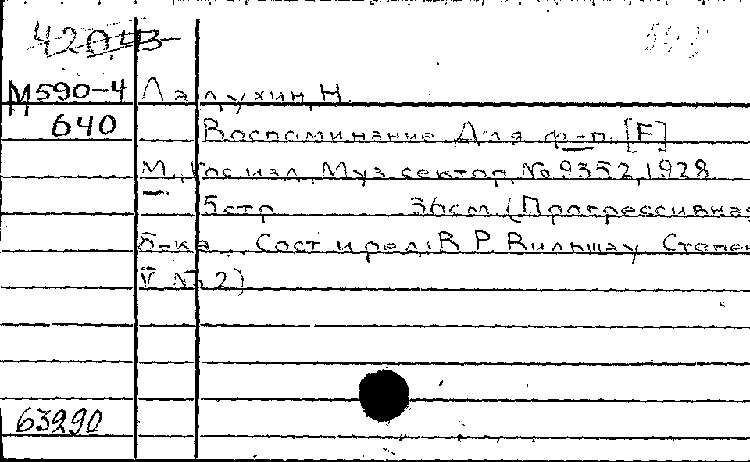 420
М590-4 Ладухин, Н.
640 Воспоминание. Для ф-п. [F]
М., Госизд., Муз. сектор, № 9352, 1928
5 стр. 36 см. (Прогрессивная
б-ка. Сост. и ред. В. Р. Вильшау. Степен
V № 2)
63290